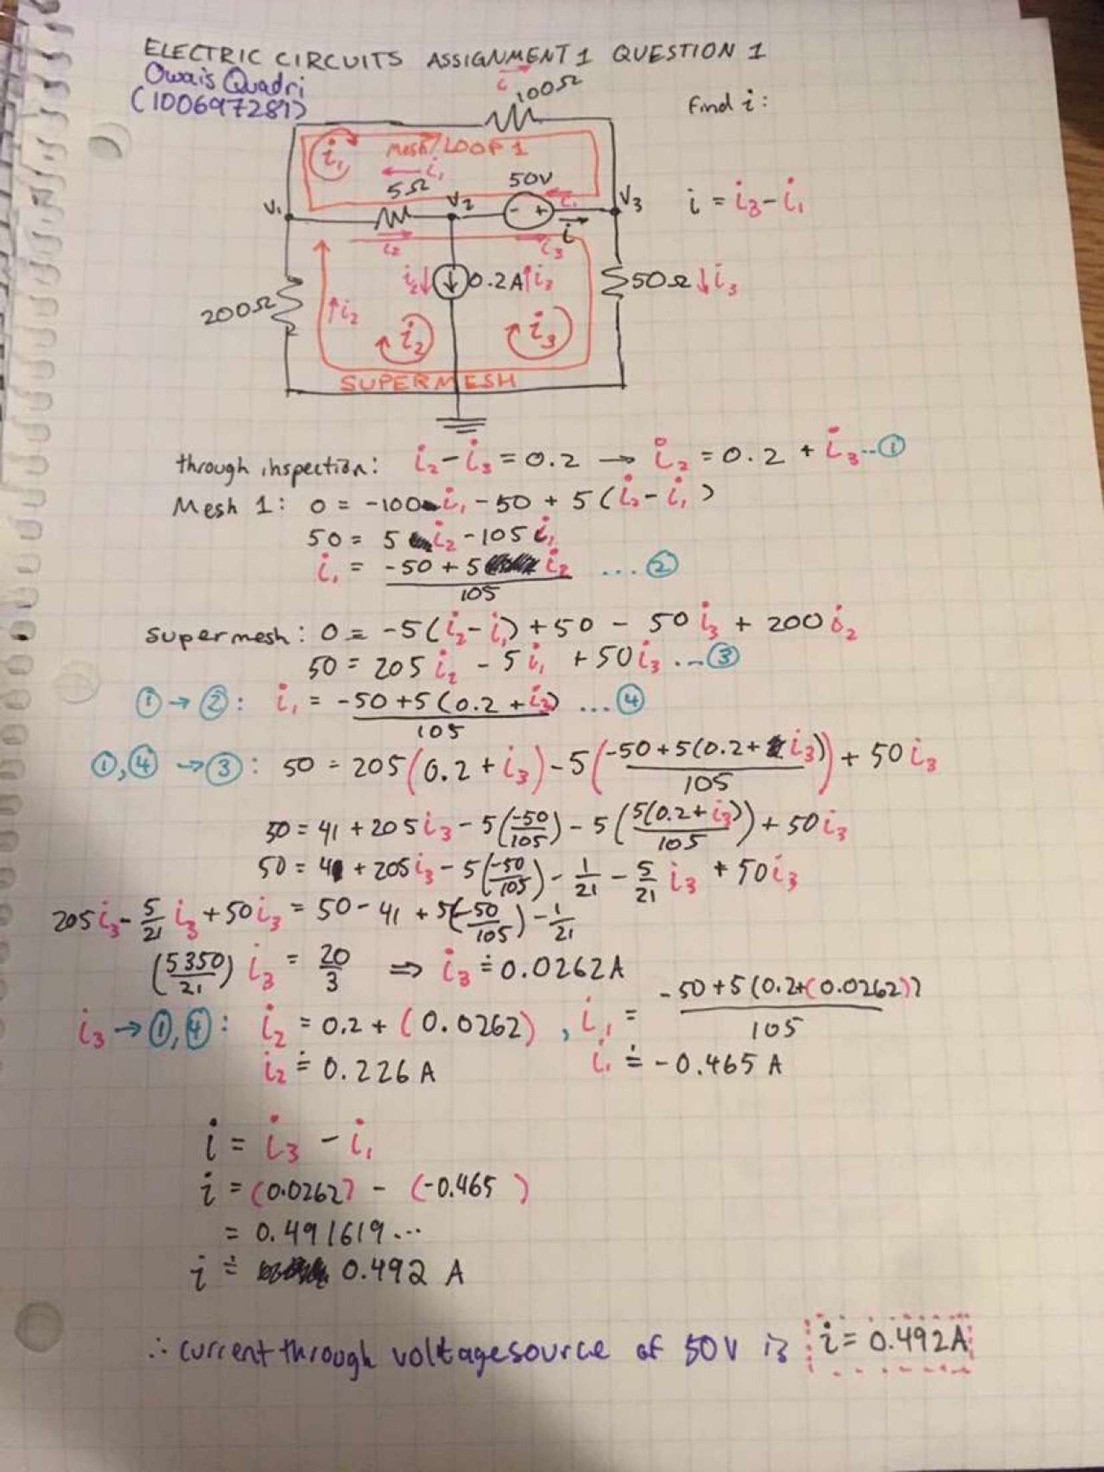 ELECTRIC CIRCUITS ASSIGNMENT 1 QUESTION 1
Owais Quadri
(100697281)
i
100Ω
Find i:
i₁
Mesh/LOOP 1
i₁
5Ω
50V
i₁
V₁
V₂
- +
V₃
i = i₃ - i₁
i₂
i₃
i
200Ω
i₂
i₂
0.2A
i₃
50Ω
i₃
i₂
i₃
SUPERMESH
through inspection: i₂ - i₃ = 0.2 → i₂ = 0.2 + i₃ ...①
Mesh 1: 0 = -100 i₁ - 50 + 5(i₂ - i₁)
50 = 5 i₂ - 105 i₁
i₁ = (-50 + 5 i₂)/105 ...②
Supermesh: 0 = -5(i₂ - i₁) + 50 - 50 i₃ + 200 i₂
50 = 205 i₂ - 5 i₁ + 50 i₃ ...③
① → ②: i₁ = (-50 + 5(0.2 + i₃))/105 ...④
①,④ → ③: 50 = 205(0.2 + i₃) - 5((-50 + 5(0.2 + i₃))/105) + 50 i₃
50 = 41 + 205 i₃ - 5(-50/105) - 5(5(0.2 + i₃)/105) + 50 i₃
50 = 41 + 205 i₃ - 5(-50/105) - 1/21 - 5/21 i₃ + 50 i₃
205 i₃ - 5/21 i₃ + 50 i₃ = 50 - 41 + 5(-50/105) - 1/21
(5350/21) i₃ = 20/3 ⇒ i₃ ≐ 0.0262A
i₃ → ①,④: i₂ = 0.2 + (0.0262), i₁ = (-50 + 5(0.2+(0.0262)))/105
i₂ ≐ 0.226 A i₁ ≐ -0.465 A
i = i₃ - i₁
i = (0.0262) - (-0.465)
= 0.491619...
i ≐ 0.492 A
∴ current through voltage source of 50V is i = 0.492A